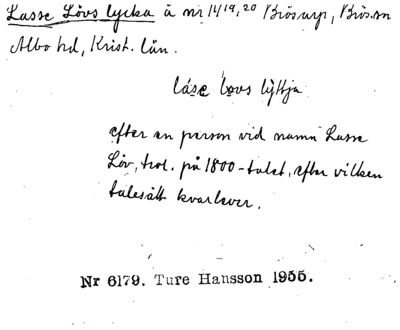 Lasse Lövs lycka å nr 14 19, 20 Brösarp, Brös. sn
Albo hd, Krist. län.
låse lovs lykkja
efter en person vid namn Lasse
Löv, trol. på 1800-talet, efter vilken
talesätt kvarlever.
Nr 6179. Ture Hansson 1955.